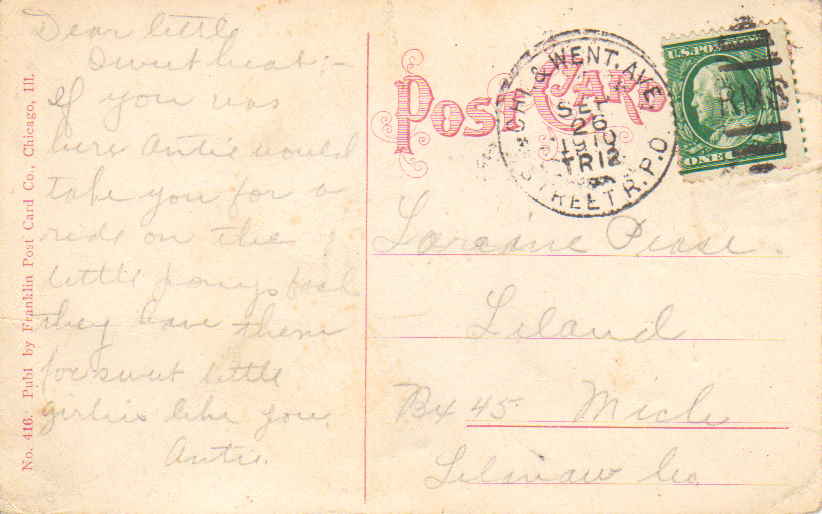 No. 416. Publ by Franklin Post Card Co., Chicago, Ill.
Dear little
Sweetheart:-
If you was
here Antie would
take you for a
ride on the
little ponys back
they have them
for sweet little
girlies like you.
Antie.
POST CARD
CHI. & WENT. AVE.
SEP
26
1910
TR 12
STREET R.P.O.
U.S. POSTAGE
ONE
RMS
Loraine Pease.
Leland
Bx 45 Mich
Lelnaw Co.